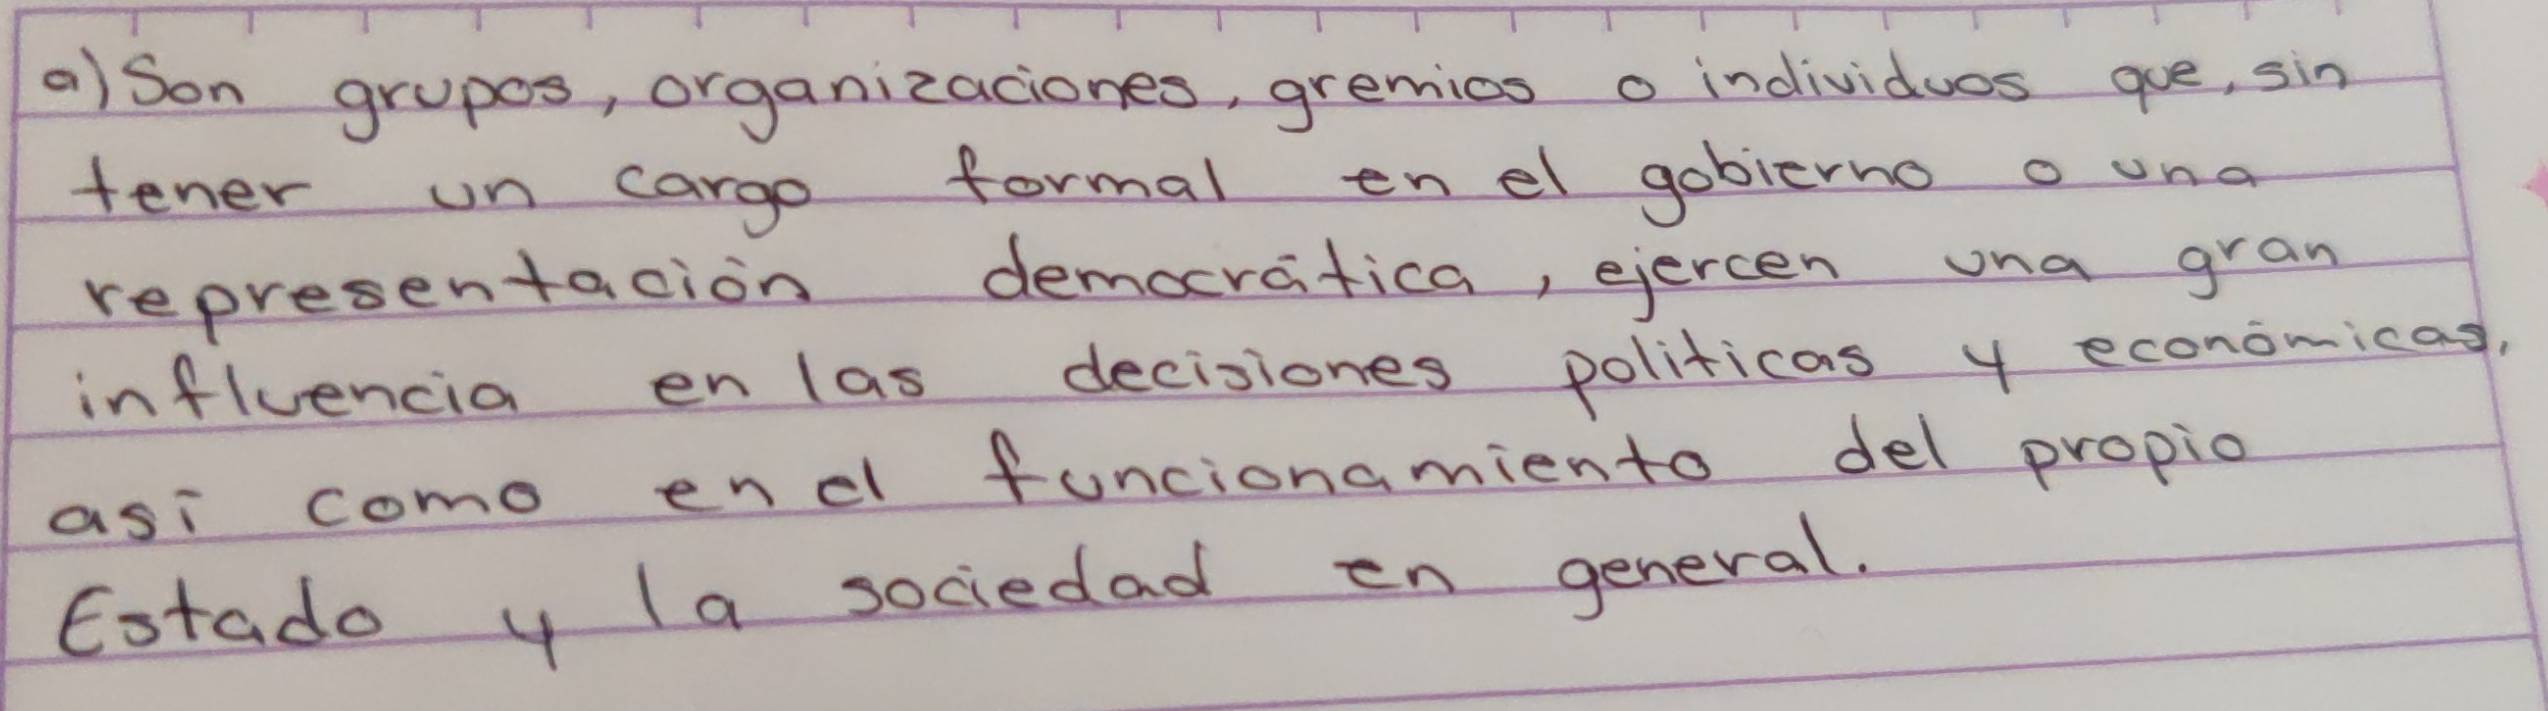 a) Son grupos, organizaciones, gremios o individuos que, sin
tener un cargo formal en el gobierno o una
representación democrática, ejercen una gran
influencia en las decisiones politicas y económicas,
así como en el funcionamiento del propio
Estado y la sociedad en general.